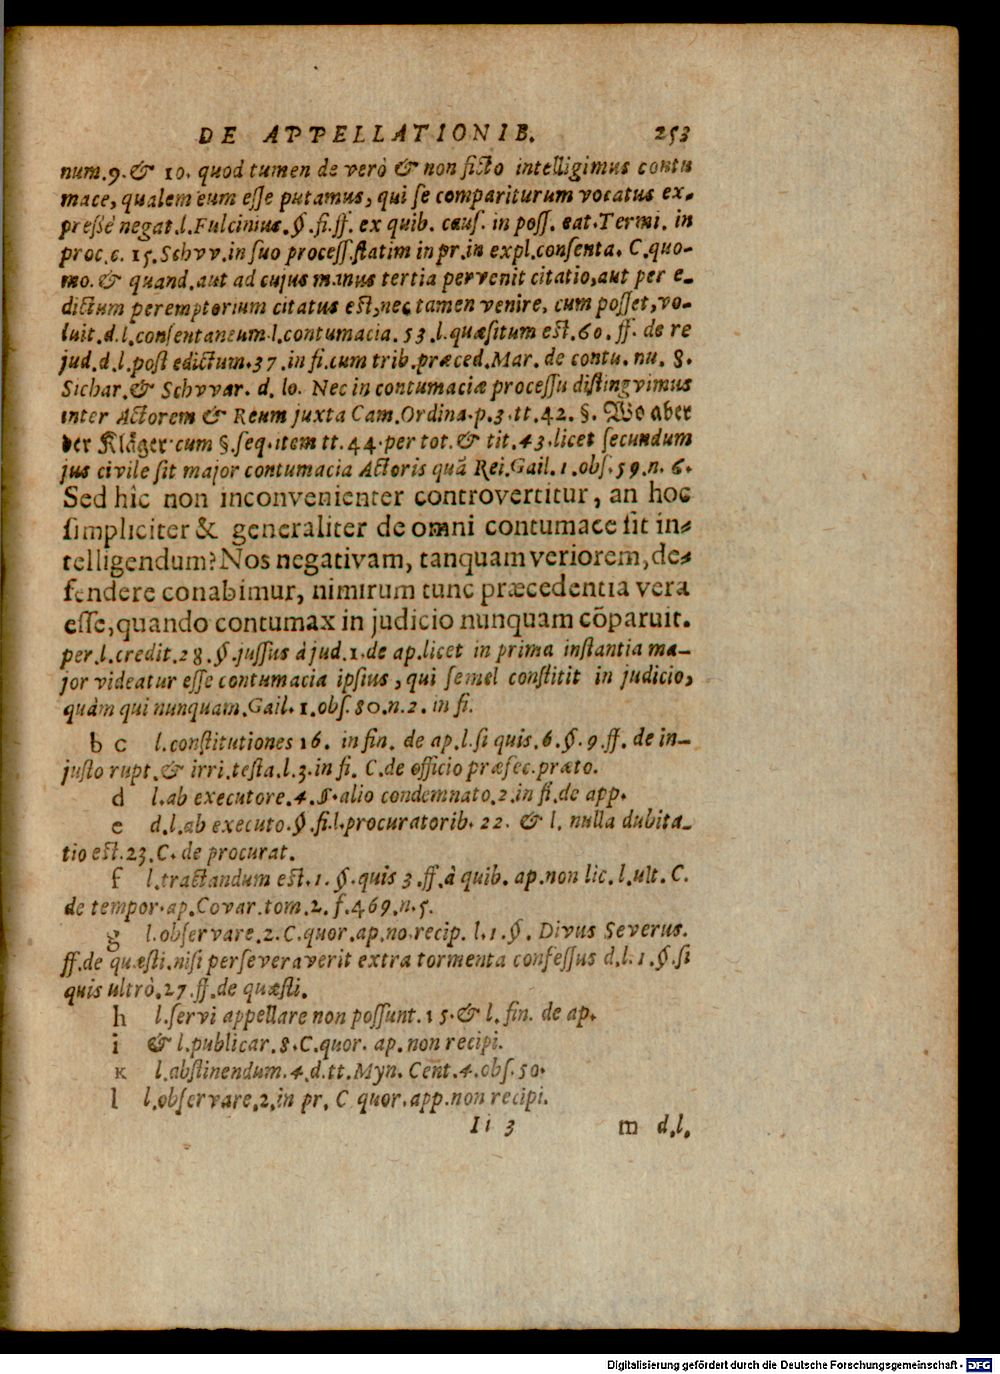 DE APPELLATIONIB. 253
num.9.& 10. quod tumen de verò & non ficto intelligimus contu
mace, qualem eum esse putamus, qui se compariturum vocatus ex-
pressè negat.l.Fulcinius.§.fi.ff. ex quib. caus. in poss. eat.Termi. in
proc.c. 15.Schvv.in suo process.statim in pr.in expl.consenta. C.quo-
mo. & quand.aut ad cujus manus tertia pervenit citatio,aut per e-
dictum peremptorium citatus est,nec tamen venire, cum posset,vo-
luit.d.l.consentaneum.l.contumacia. 53.l.quæsitum est.60.ff. de re
jud.d.l.post edictum.37.in fi.cum trib.præced.Mar. de contu. nu. 8.
Sichar.& Schvvar. d. lo. Nec in contumaciæ processu distingvimus
inter Actorem & Reum juxta Cam.Ordina.p.3.tt.42. §. Wo aber
der Kläger cum §.seq.item tt.44.per tot.& tit.43.licet secundum
jus civile sit major contumacia Actoris quã Rei.Gail.1.obs.59.n.6.
Sed hîc non inconvenienter controvertitur, an hoc
simpliciter & generaliter de omni contumace sit in-
telligendum? Nos negativam, tanquam veriorem, de-
fendere conabimur, nimirum tunc præcedentia vera
esse, quando contumax in judicio nunquam cõparuit.
per.l.credit.28.§.jussus à jud.1.de ap.licet in prima instantia ma-
jor videatur esse contumacia ipsius, qui semel constitit in judicio,
quàm qui nunquam.Gail.1.obs.80.n.2. in fi.
b c l.constitutiones 16. in fin. de ap.l.si quis.6.§.9.ff. de in-
justo rupt.& irri.testa.l.3.in fi. C.de officio præfec.præto.
d l.ab executore.4.§.alio condemnato.2.in fi.de app.
e d.l.ab executo.§.fi.l.procuratorib.22. & l. nulla dubita-
tio est.23.C.de procurat.
f l.tractandum est.1.§.quis 3.ff.à quib. ap.non lic.l.ult. C.
de tempor.ap.Covar.tom.2.f.469.n.5.
g l.observare.2.C.quor.ap.no.recip. l.1.§. Divus Severus.
ff.de quæsti.nisi perseveraverit extra tormenta confessus d.l.1.§.si
quis ultrò.27.ff.de quæsti.
h l.servi appellare non possunt.15.& l. fin. de ap.
i & l.publicar.8.C.quor. ap.non recipi.
κ l.abstinendum.4.d.tt.Myn. Cent.4.obs.50.
l l.observare.2.in pr. C quor.app.non recipi.
Ii 3 m d.l.
Digitalisierung gefördert durch die Deutsche Forschungsgemeinschaft - DFG